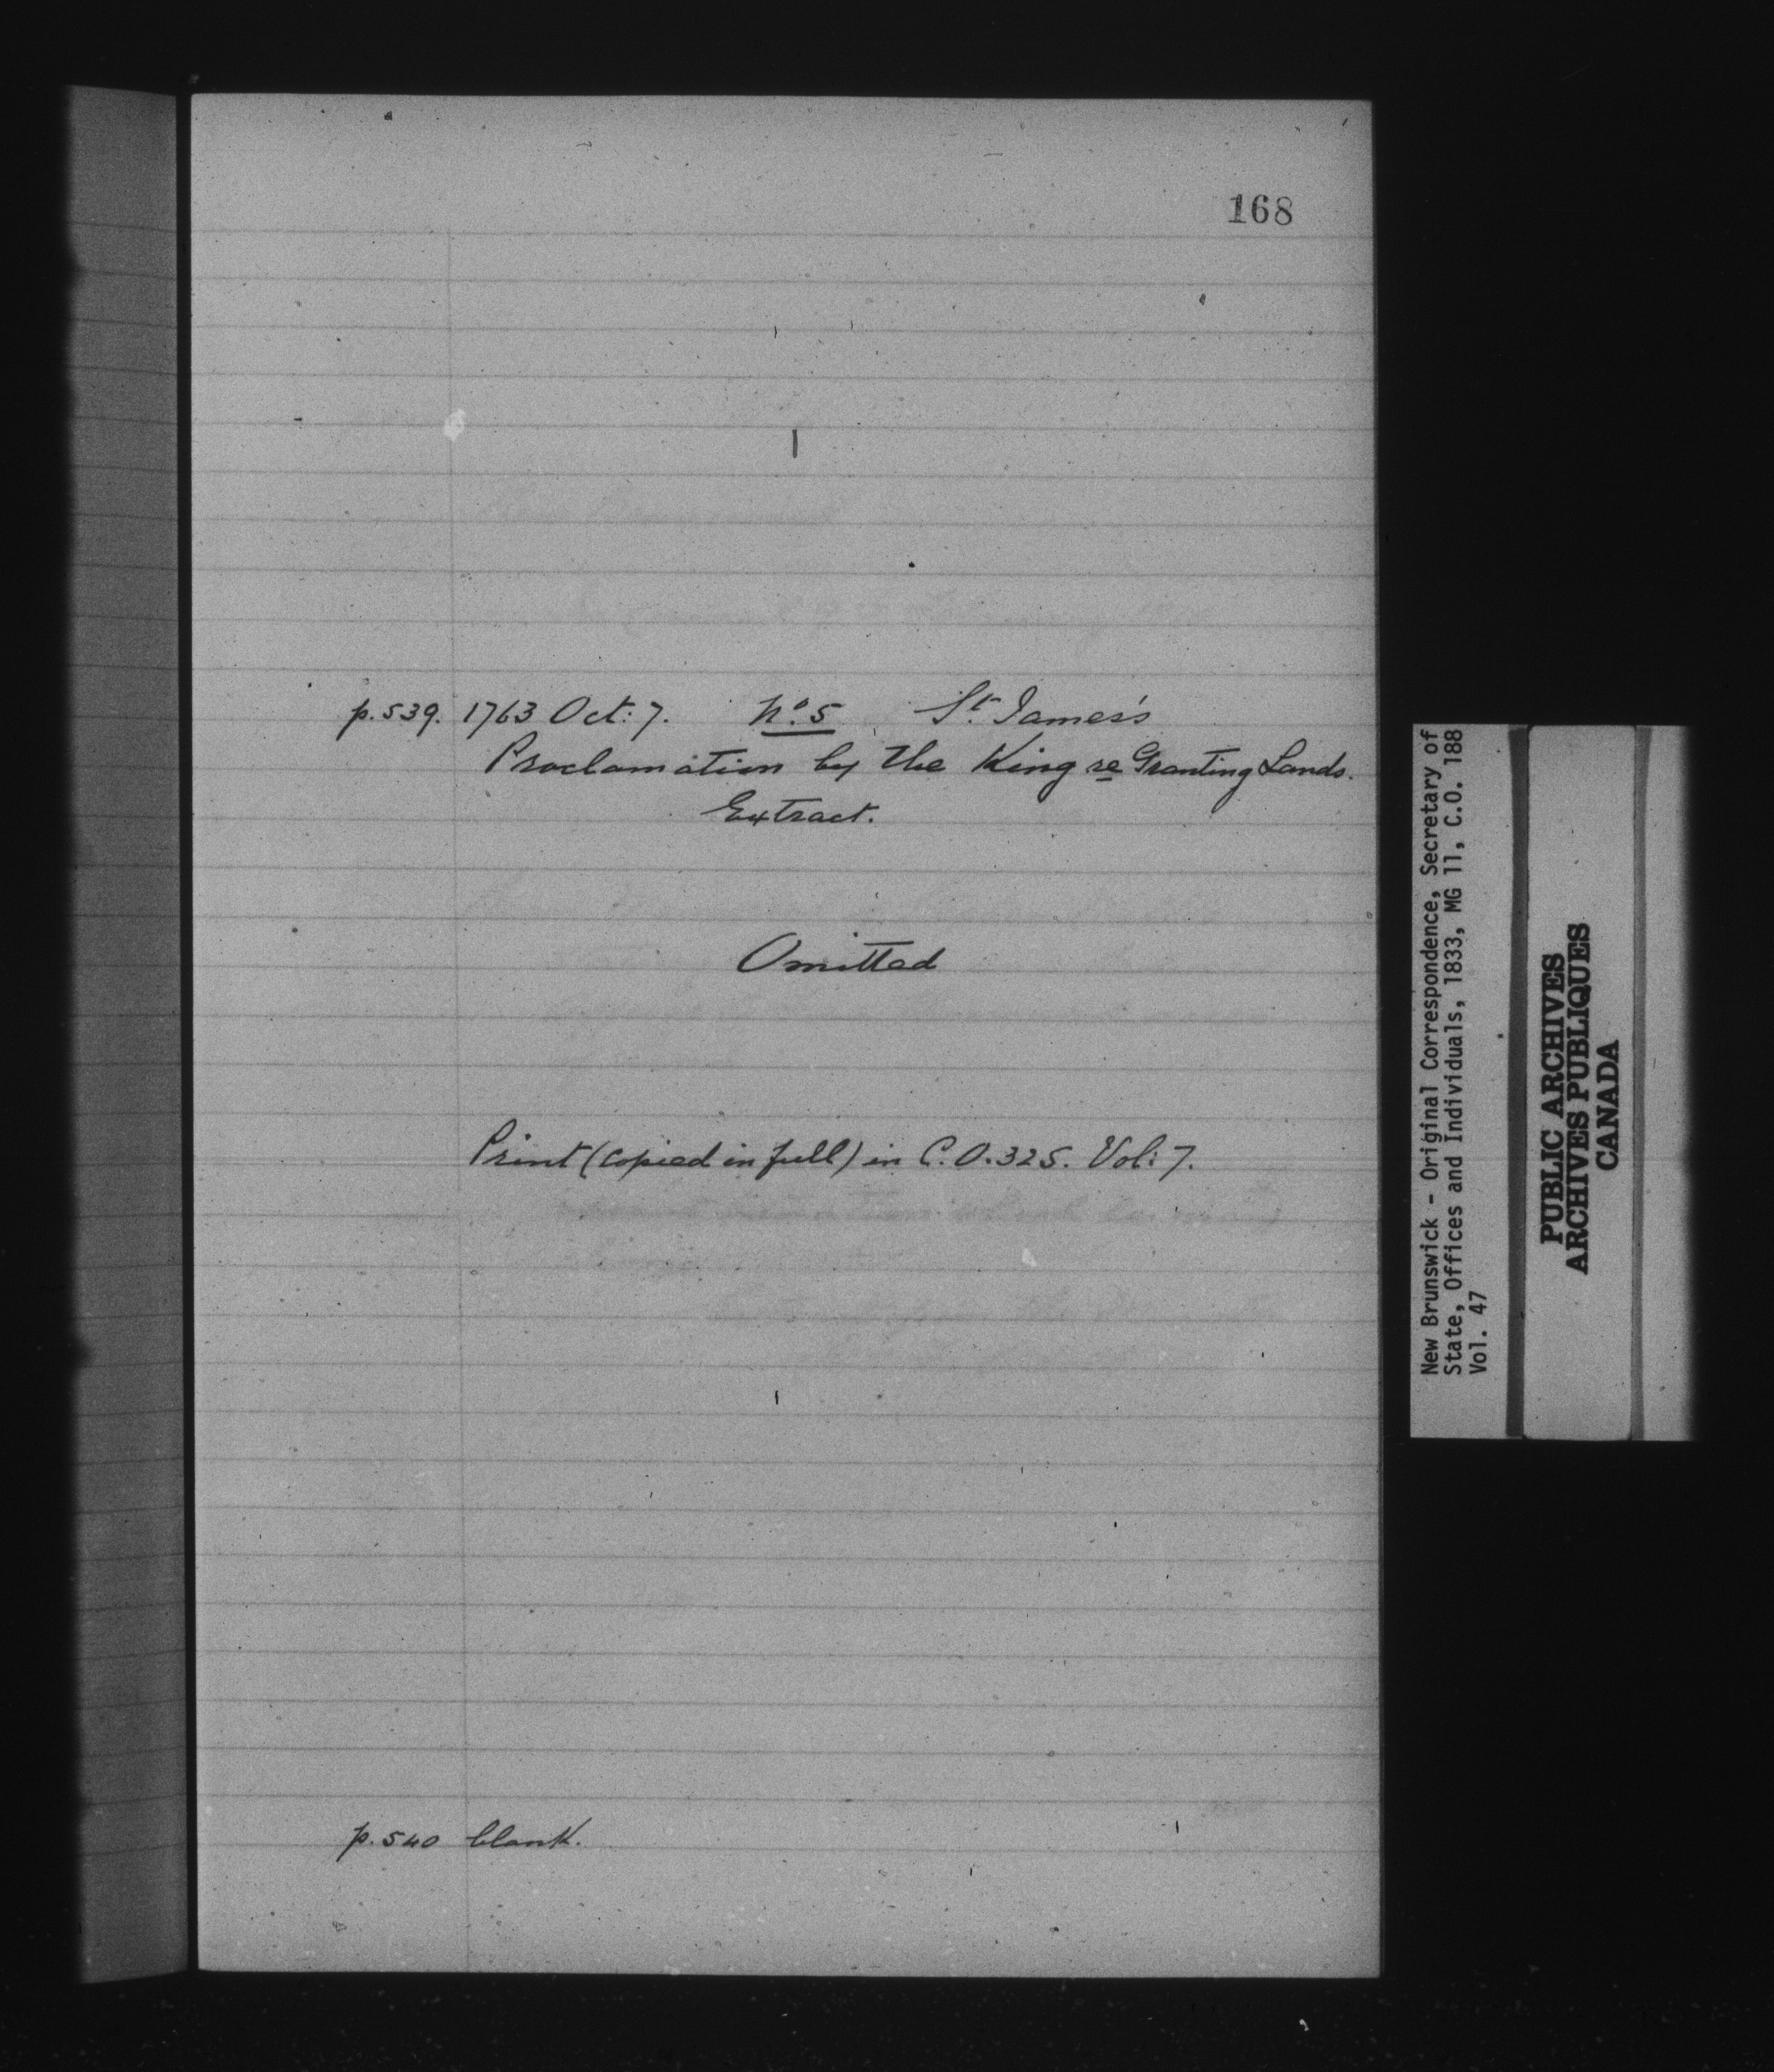 168
p. 539. 1763 Oct: 7. No. 5 St. James's
Proclamation by the King re Granting Lands.
Extract.
Omitted
Print (copied in full) in C.O. 325. Vol: 7.
p. 540 blank.
New Brunswick - Original Correspondence, Secretary of
State, Offices and Individuals, 1833, MG 11, C.O. 188
Vol. 47
PUBLIC ARCHIVES
ARCHIVES PUBLIQUES
CANADA